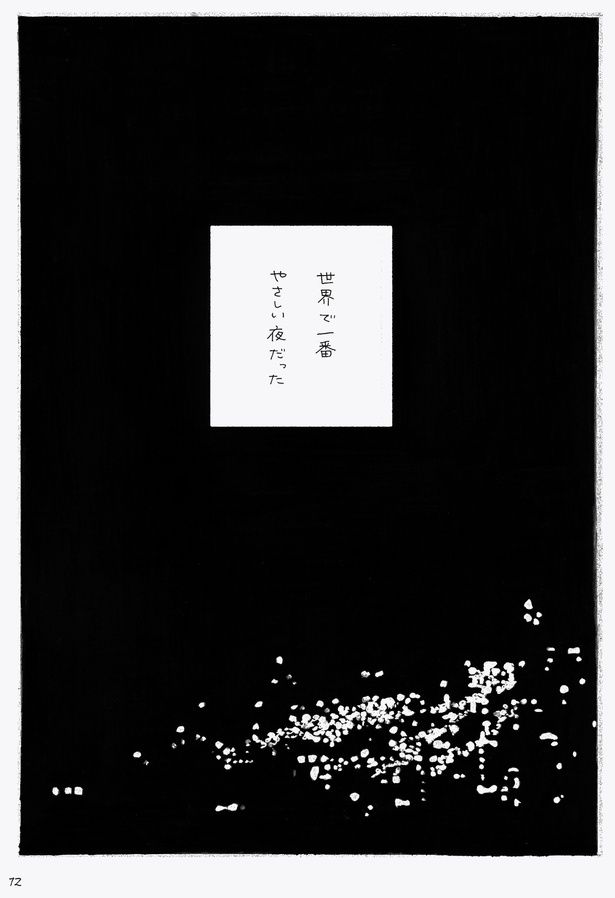 世界で一番
やさしい夜だった
12